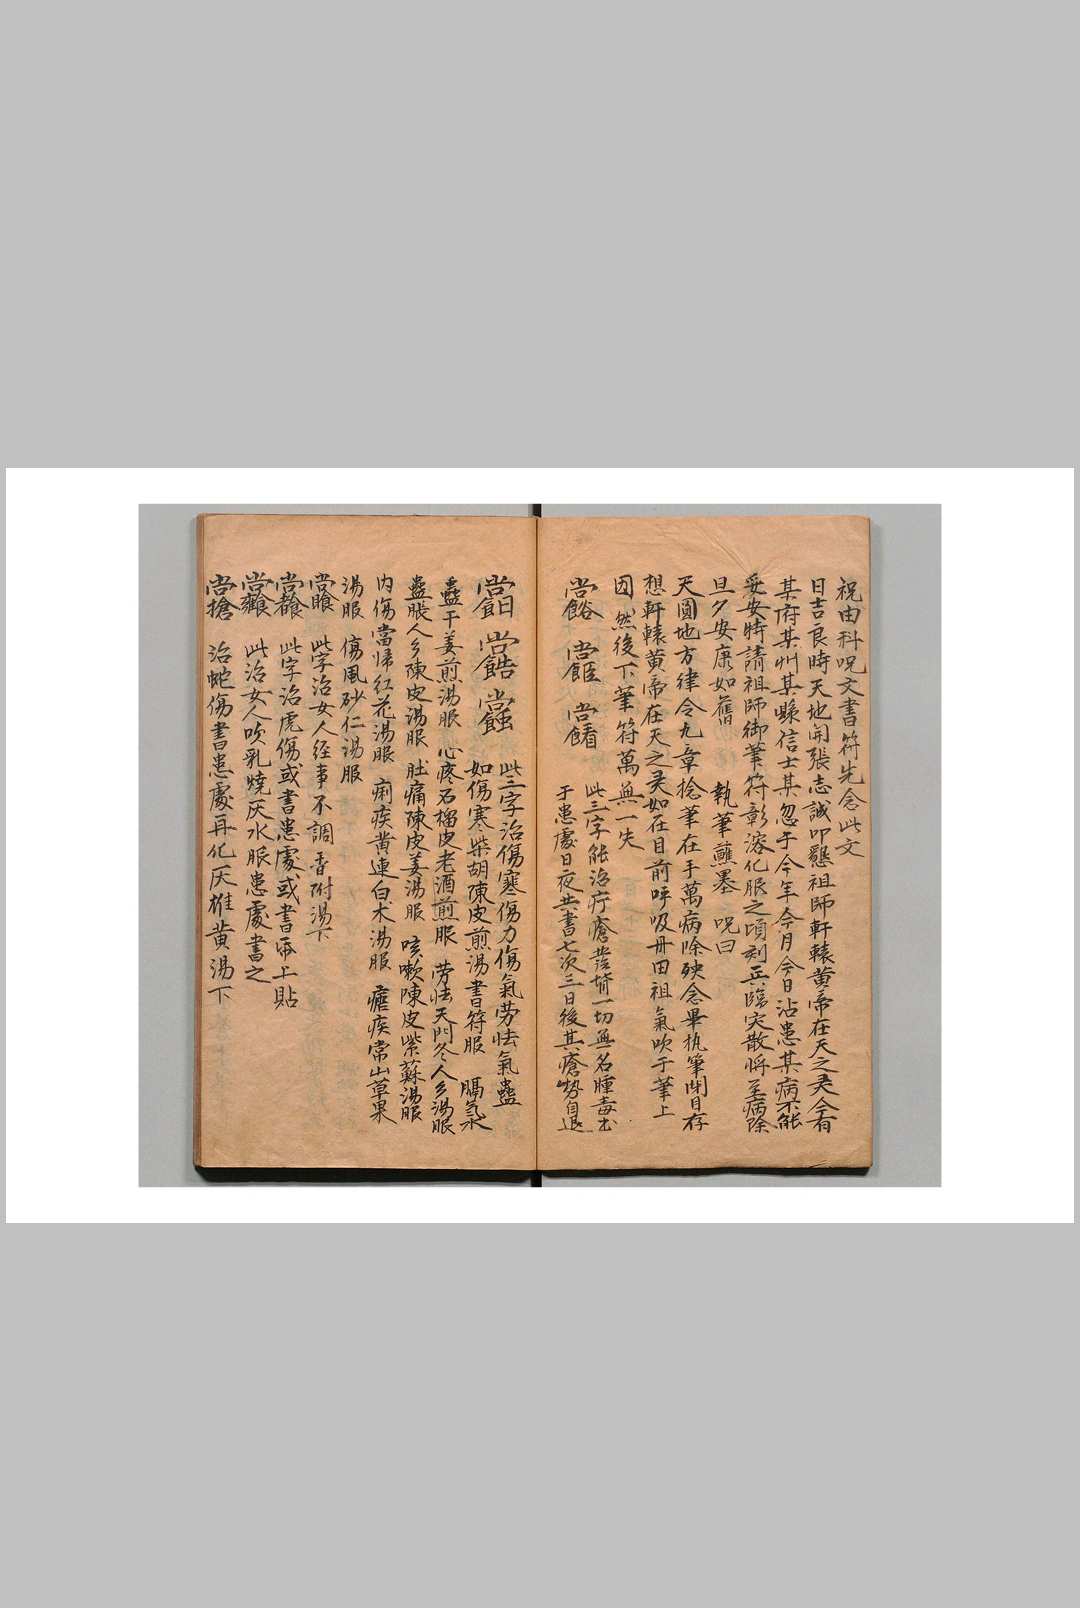 祝由科呪文書符先念此文
日吉良時天地開張志誠叩懇祖師軒轅黄帝在天之灵今有
某府某州某縣信士某忽于今年今月今日沾患某病不能
妥安特請祖師御筆符彰溶化服之頃刻兵臨灾散將至病除
旦夕安康如舊 執筆蘸墨 呪曰
天圓地方律令九章捻筆在手萬病除殃念畢执筆閉目存
想軒轅黄帝在天之灵如在目前呼吸丹田祖氣吹于筆上
因然後下筆符萬無一失
此三字能治疔瘡發背一切無名腫毒書
于患處日夜共書七次三日後其瘡势自退
此三字治傷寒傷力傷氣劳怯氣蠱
如傷寒柴胡陳皮煎湯書符服 膈氣水
蠱干姜煎湯服 心疼石榴皮老酒煎服 劳怯天門冬人乡湯服
蠱脹人乡陳皮湯服 肚痛陳皮姜湯服 咳嗽陳皮紫蘇湯服
内傷當帰红花湯服 痢疾黄連白术湯服 瘧疾常山草果
湯服 傷風砂仁湯服
此字治女人经事不調香附湯下
此字治虎傷或書患處或書帋上貼
此治女人吹乳燒灰水服患處書之
治蛇傷書患處再化灰雄黄湯下